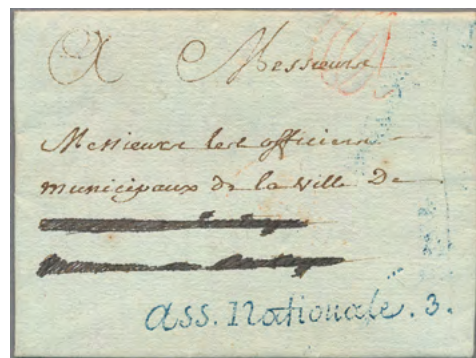 A Messieurs
Messieurs les officiers
municipaux de la Ville De
Ass. Nationale. 3.